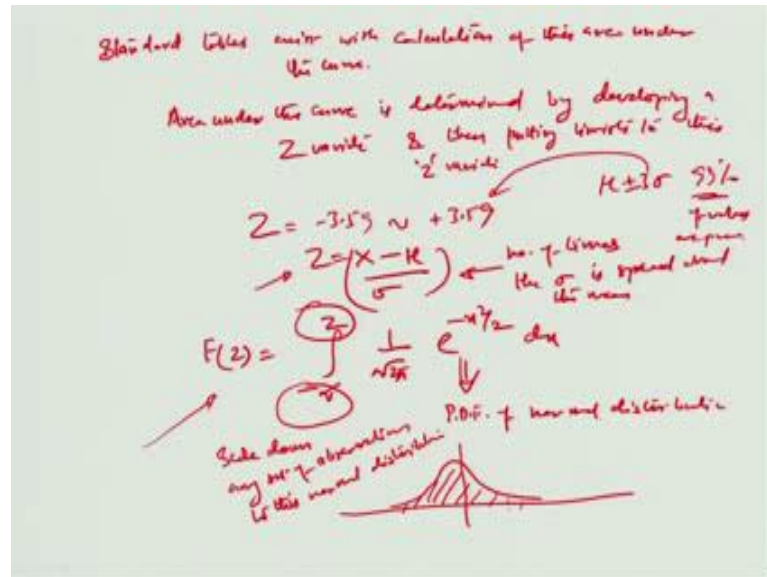 Standard tables exist with calculation of this area under
the curve.
Area under the curve is determined by developing a
Z variate & then putting limits to this
'z' variate
μ ± 3σ 99%
Z = -3.59 ~ +3.59
values
Z = (X - μ / σ)
no. of times
the σ is spread around
the mean
F(Z) = ∫ 1/√2π e^-x²/2 dx
Z
P.D.F. of normal distribution
Scale down
any set of observations
to this normal distribution